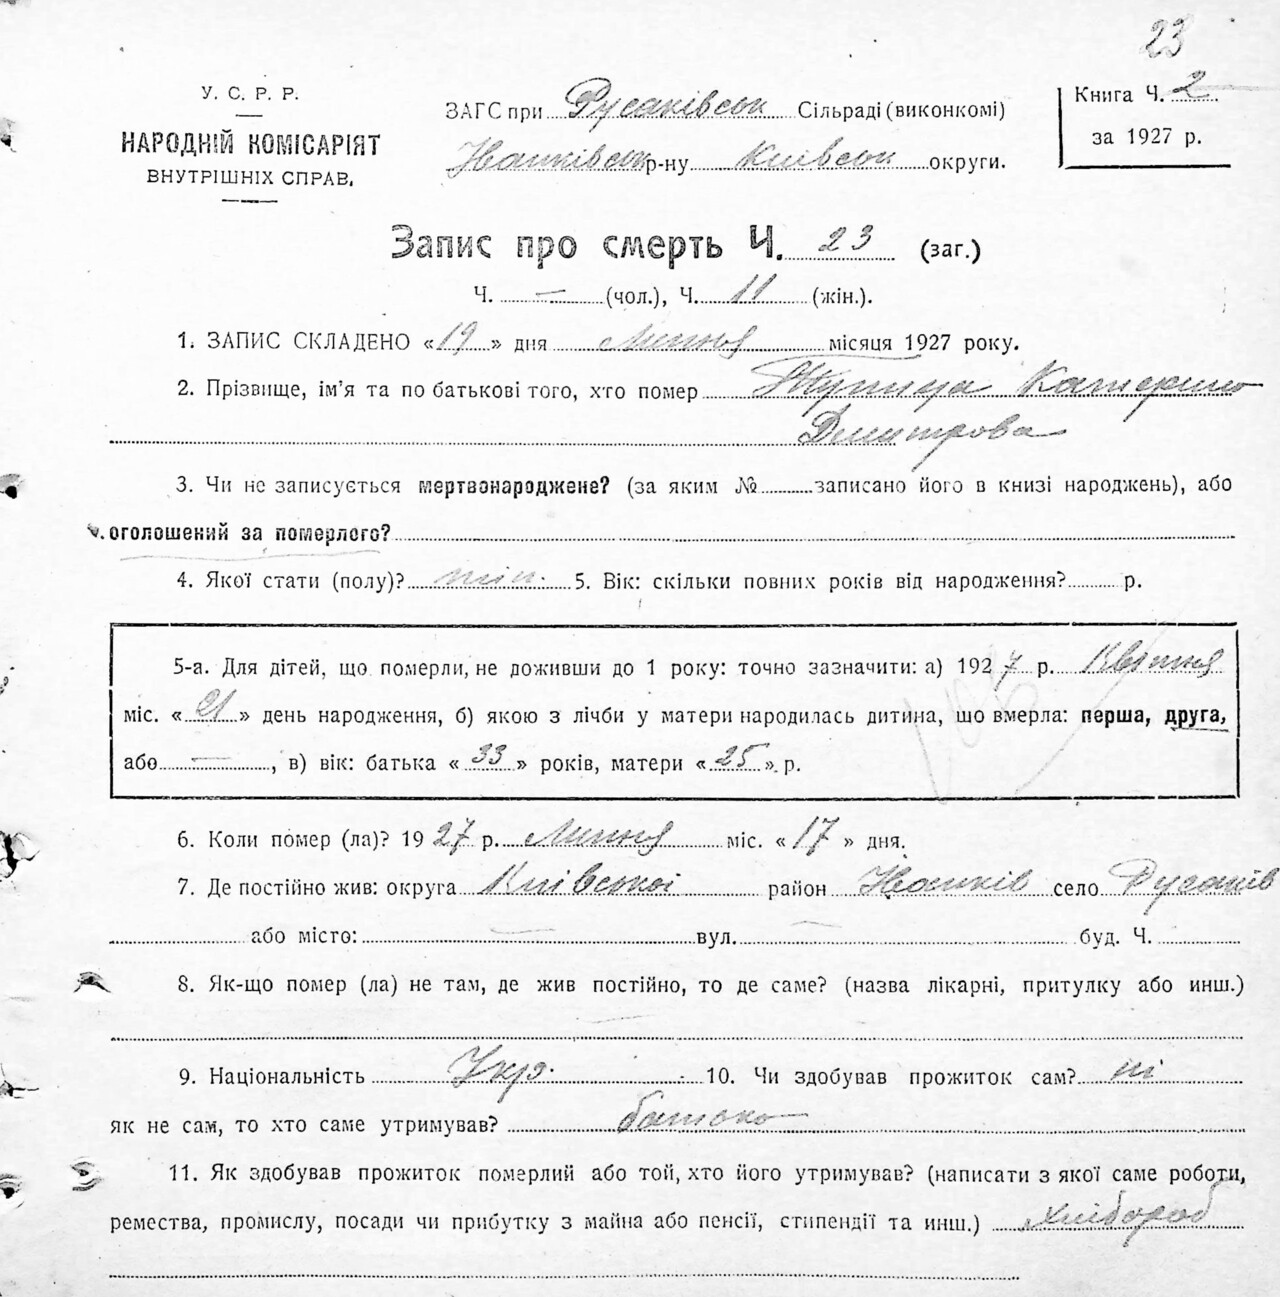 23
У. С. Р. Р.
НАРОДНІЙ КОМІСАРІЯТ
ВНУТРІШНІХ СПРАВ.
ЗАГС при Русаківськ Сільраді (виконкомі)
Іванківськ р-ну Київськ округи.
Книга Ч. 2
за 1927 р.
Запис про смерть Ч. 23 (заг.)
Ч. — (чол.), Ч. 11 (жін.).
1. ЗАПИС СКЛАДЕНО «19» дня Липня місяця 1927 року.
2. Прізвище, ім'я та по батькові того, хто помер Катерина
Дмитрова
3. Чи не записується мертвонароджене? (за яким № записано його в книзі народжень), або
оголошений за померлого?
4. Якої стати (полу)? 5. Вік: скільки повних років від народження? р.
5-а. Для дітей, що померли, не доживши до 1 року: точно зазначити: а) 1927 р. Квітня
міс. «21» день народження, б) якою з лічби у матери народилась дитина, що вмерла: перша, друга,
або —, в) вік: батька «33» років, матери «25» р.
6. Коли помер (ла)? 1927 р. Липня міс. «17» дня.
7. Де постійно жив: округа Київської район Іванків село Русаків
або місто: — вул. — буд. Ч.
8. Як-що помер (ла) не там, де жив постійно, то де саме? (назва лікарні, притулку або инш.)
—
9. Національність Укр. 10. Чи здобував прожиток сам? ні
як не сам, то хто саме утримував? батько
11. Як здобував прожиток померлий або той, хто його утримував? (написати з якої саме роботи,
ремества, промислу, посади чи прибутку з майна або пенсії, стипендії та инш.) хлібороб